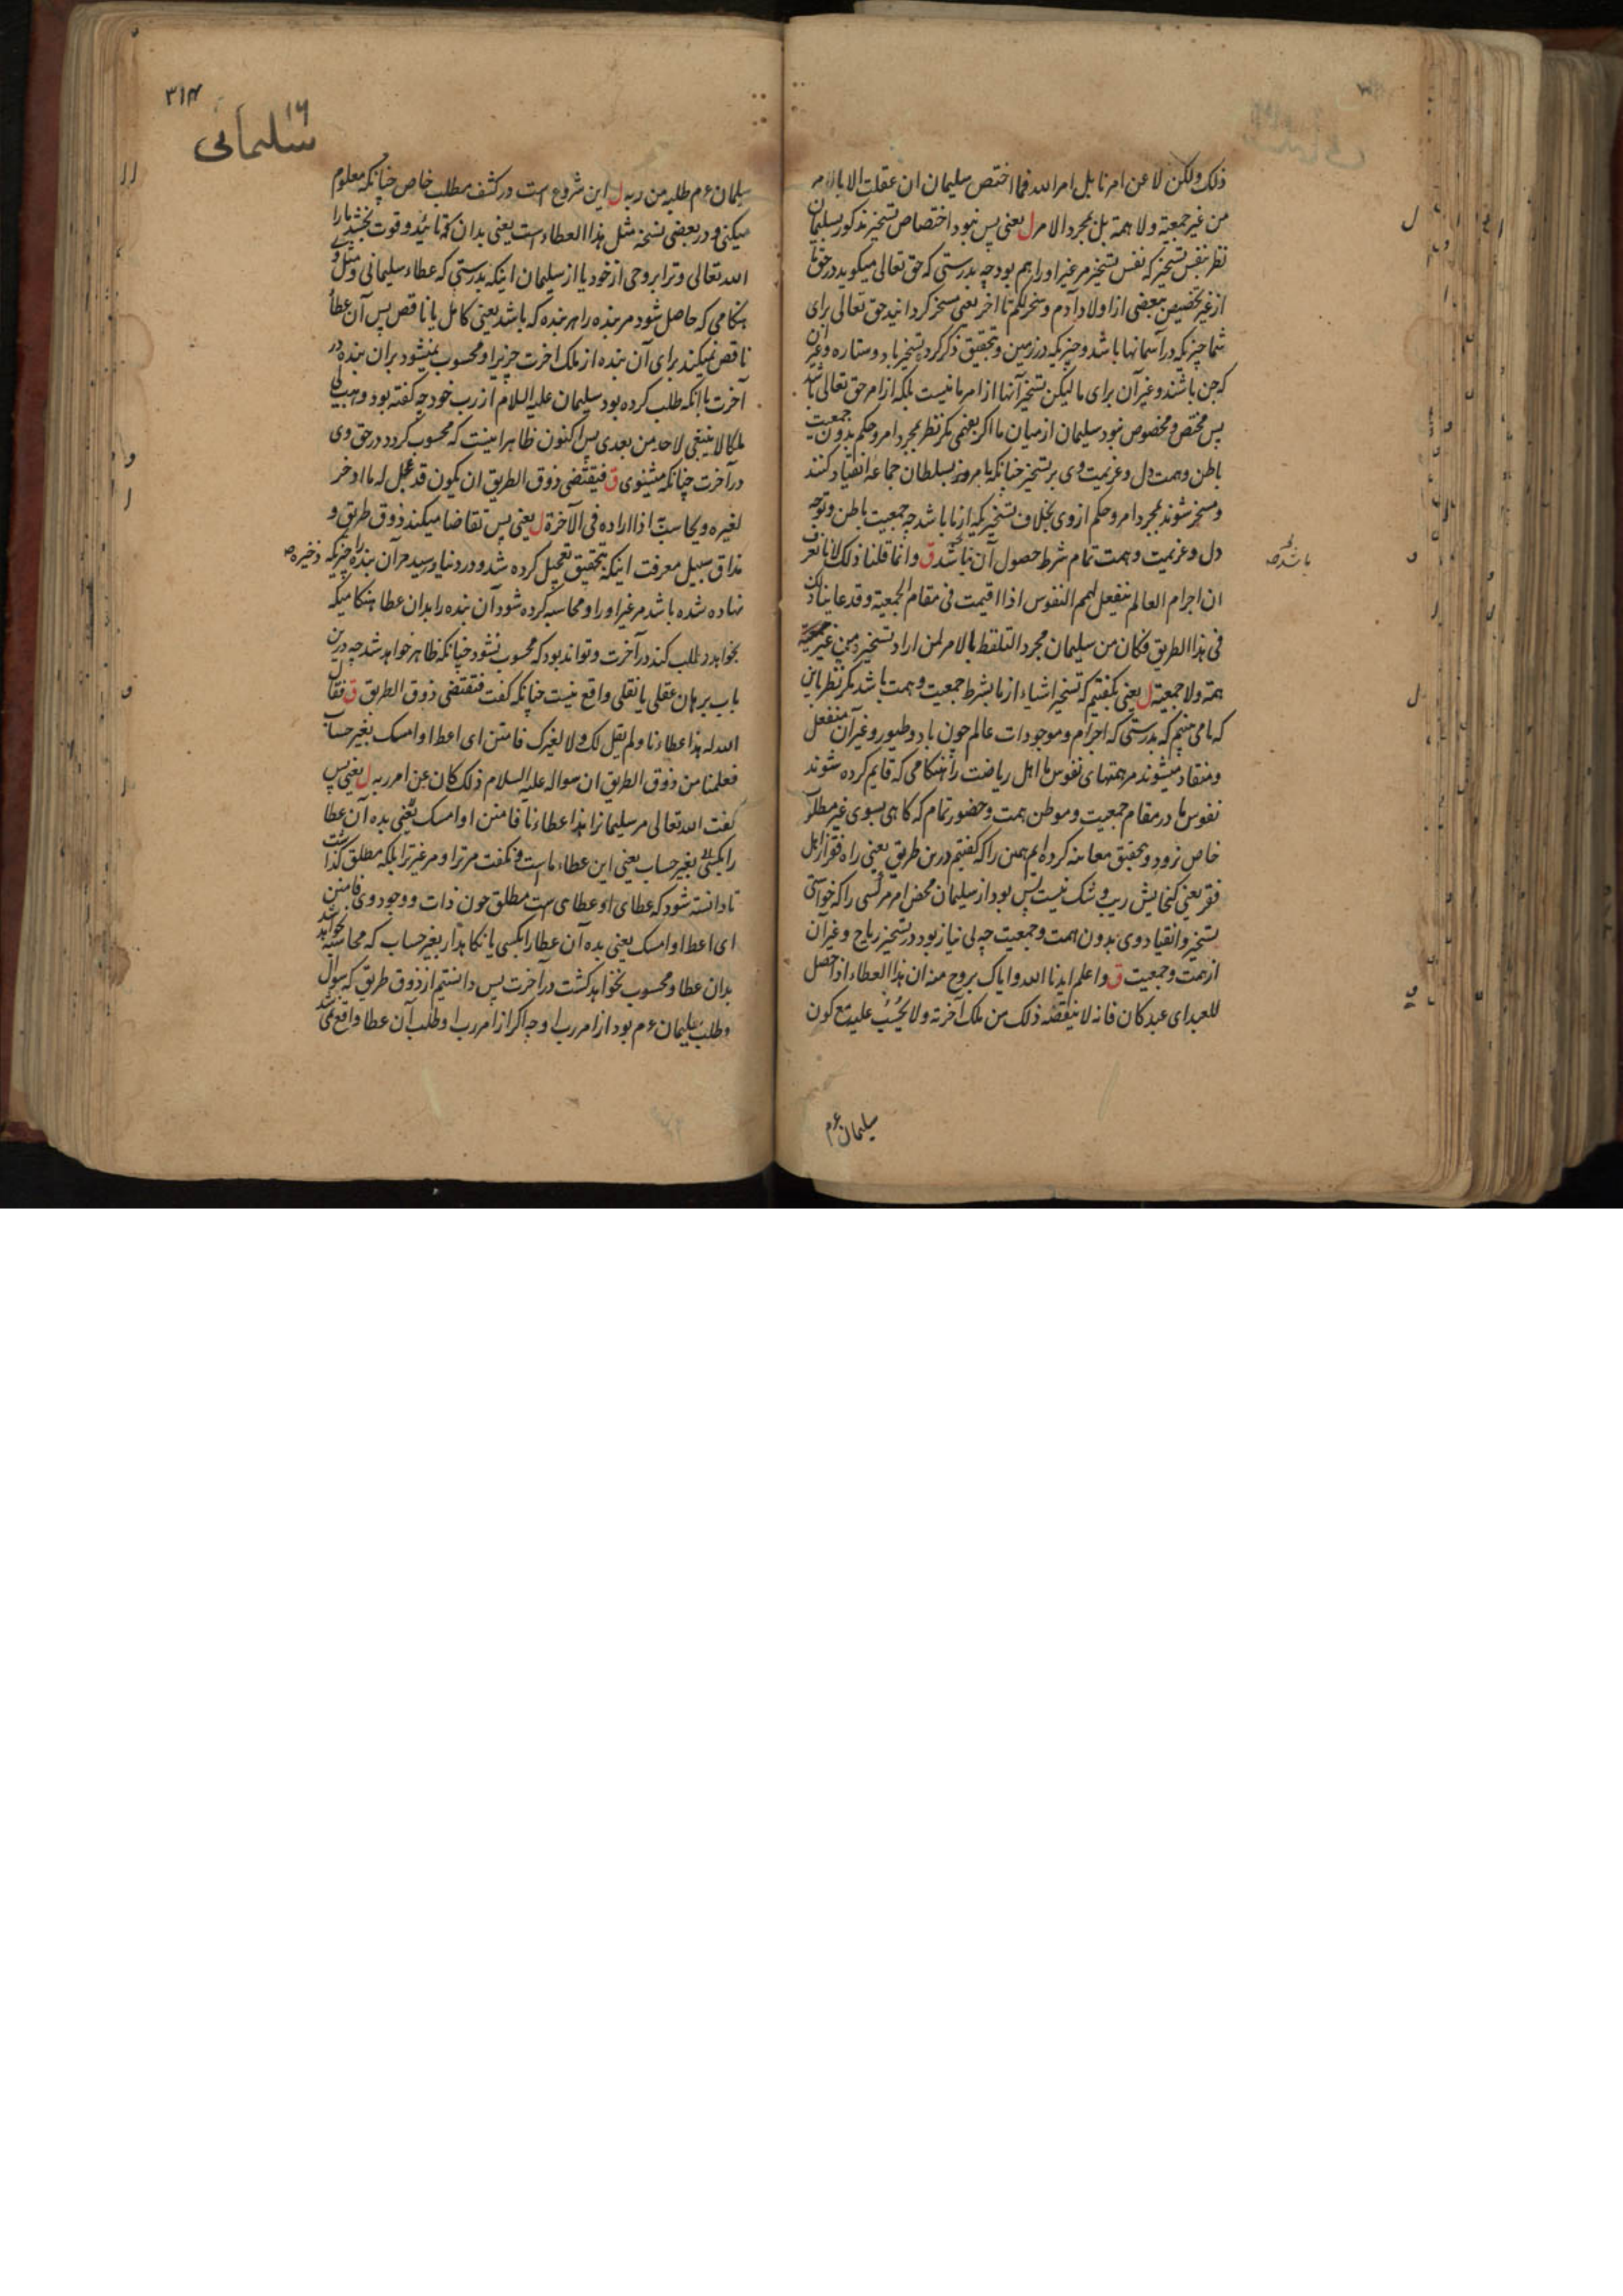 ذلک ولکن لا عن امرنا بل امر الله فما اختص سلیمان ان عقلت الا بالامر
من غیر جمعیة ولا همة بل بمجرد الامر ل یعنی پس نبود اختصاص تسخیر مذکور بسلیمان
نظر بنفس تسخیر که نفس تسخیر مر غیر او را هم بود چه بدرستی که حق تعالی میکوید در حق ما
از غیر تخصیص ببعضی از اولاد آدم و سخر لکم تا اخر یعنی مسخر کردانید حق تعالی برای
شما چیزیکه در آسمانها باشد و چیزیکه در زمین و بتحقیق ذکر کرد تسخیر باد و ستاره و غیر آن
که جن باشند و غیر آن برای ما لیکن تسخیر آنها از امر ما نیست بلکه از امر حق تعالی باشد
پس مختص و مخصوص نبود سلیمان از میان ما اکر بفهمی مکر نظر بمجرد امر و حکم بدون جمعیت
باطن و همت دل و عزیمت وی بر تسخیر چنانکه بامر وزیر سلطان جماعه انقیاد کنند
و مسخر شوند بمجرد امر و حکم از وی بخلاف تسخیریکه از ما باشد چه جمعیت باطن و توجه
دل و عزیمت و همت تمام شرط حصول آن باشد ق وانما قلنا ذلک لانا نعرف
باشد صح
ان اجرام العالم تنفعل لهمم النفوس اذا اقیمت فی مقام الجمعیة وقد عاینا ذلک
فی هذا الطریق فکان من سلیمان مجرد التلفظ بالامر لمن اراد تسخیره من غیر
همة ولا جمعیة ل یعنی بکفتیم که تسخیر اشیاء از ما بشرط جمعیت و همت باشد مکر نظر باین
که ما می بینیم که بدرستی که اجرام و موجودات عالم چون باد و طیور و غیر آن منفعل
و منقاد میشوند مر همتهای نفوس ما اهل ریاضت را هنکامی که قایم کرده شوند
نفوس ما در مقام جمعیت و موطن همت و حضور تمام که کاهی بسوی غیر مطلب
خاص نرود و بتحقیق معاینه کرده ایم همین را که کفتیم درین طریق یعنی راه فقر از اهل
فقر یعنی کنجایش ریب و شک نیست پس بود از سلیمان محض امر مر کسی را که خواستی
تسخیر و انقیاد وی بدون همت و جمعیت چه بی نیاز بود در تسخیر ریاح و غیر آن
از همت و جمعیت ق واعلم ایدنا الله وایاک بروح منه ان هذا العطاء اذا حصل
للعبد ای عبد کان فانه لا ینقصه ذلک من ملک آخرته ولا یحسب علیه مع کون
سلیمان عم
۳۱۴
۱۶
سلیمانی
سلیمان عم طلبه من ربه ل این شروع است در کشف مطلب خاص چنانکه معلوم
میکنی و در بعضی نسخه مثل هذا العطاء است یعنی بدان که تائید و قوت بخشد ما را
الله تعالی و ترا بروحی از خود یا از سلیمان اینکه بدرستی که عطاء سلیمانی و مثل وی
هنکامی که حاصل شود مر بنده را هر بنده که باشد یعنی کامل یا ناقص پس آن عطاء
ناقص نمیکند برای آن بنده از ملک اخرت چیزیرا و محسوب نمیشود بران بنده در
آخرت با آنکه طلب کرده بود سلیمان علیه السلام از رب خود چه کفته بود وهب لی
ملکا لا ینبغی لاحد من بعدی پس اکنون ظاهر اینست که محسوب کردد در حق وی
در آخرت چنانکه میشنوی ق فیقتضی ذوق الطریق ان یکون قد عجل له ما ادخر
لغیره ویحاسب اذا اراده فی الآخرة ل یعنی پس تقاضا میکند ذوق طریق و
مذاق سبیل معرفت اینکه بتحقیق تعجیل کرده شد و در دنیا رسید مر آن بنده را چیزیکه ذخیره صح
نهاده شده باشد مر غیر او را و محاسبه کرده شود آن بنده را بدان عطا هنکامیکه
بخواهد و طلب کند در آخرت و تواند بود که محسوب نشود چنانکه ظاهر خواهد شد چه درین
باب برهان عقلی یا نقلی واقع نیست چنانکه کفت فیقتضی ذوق الطریق ق فقال
الله له هذا عطاءنا ولم یقل لک ولا لغیرک فامنن ای اعط او امسک بغیر حساب
فعلمنا من ذوق الطریق ان سواله علیه السلام ذلک کان عن امر ربه ل یعنی پس
کفت الله تعالی مر سلیمانرا هذا عطاءنا فامنن او امسک یعنی بده آن عطا
را بکسی بغیر حساب یعنی این عطاء ماست و نکفت مر ترا و مر غیر ترا بلکه مطلق کذاشت
تا دانسته شود که عطای او عطای است مطلق چون ذات و وجود وی فامنن
ای اعط او امسک یعنی بده آن عطا را بکسی یا نکاهدار بغیر حساب که محاسبه نخواهد شد
بدان عطا و محسوب نخواهد کشت در آخرت پس دانستیم از ذوق طریق که سوال
و طلب سلیمان عم بود از امر رب او چه اکر از امر رب او طلب آن عطا واقع نمی شد